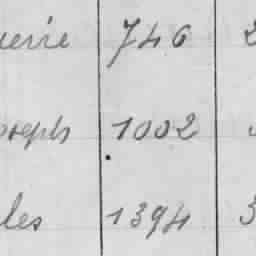 uerre 746 2
oseph 1002
les 1394 3